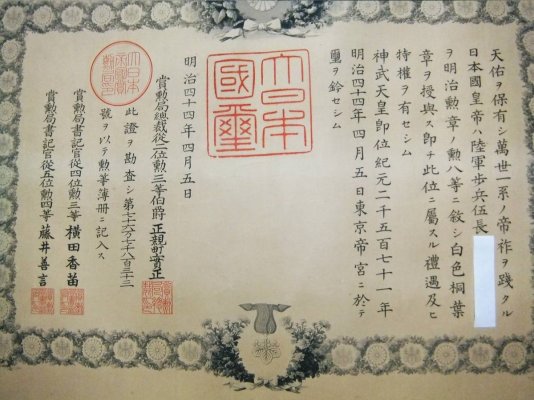 天佑ヲ保有シ萬世一系ノ帝祚ヲ踐タル
日本國皇帝ハ陸軍歩兵伍長
ヲ明治勲章ノ勲八等ニ敍シ白色桐葉
章ヲ授與ス即チ此位ニ屬スル禮遇及ヒ
特權ヲ有セシム
神武天皇即位紀元二千五百七十一年
明治四十四年四月五日東京帝宮ニ於テ
璽ヲ鈐セシム
大日本
國璽
明治四十四年四月五日
賞勲局總裁從二位勲三等伯爵正親町實正
此證ヲ勘査シ第七十六万七千八百三十三
號ヲ以テ勲等簿册ニ記入ス
賞勲局書記官從四位勲三等横田香苗
賞勲局書記官從五位勲四等藤井善言